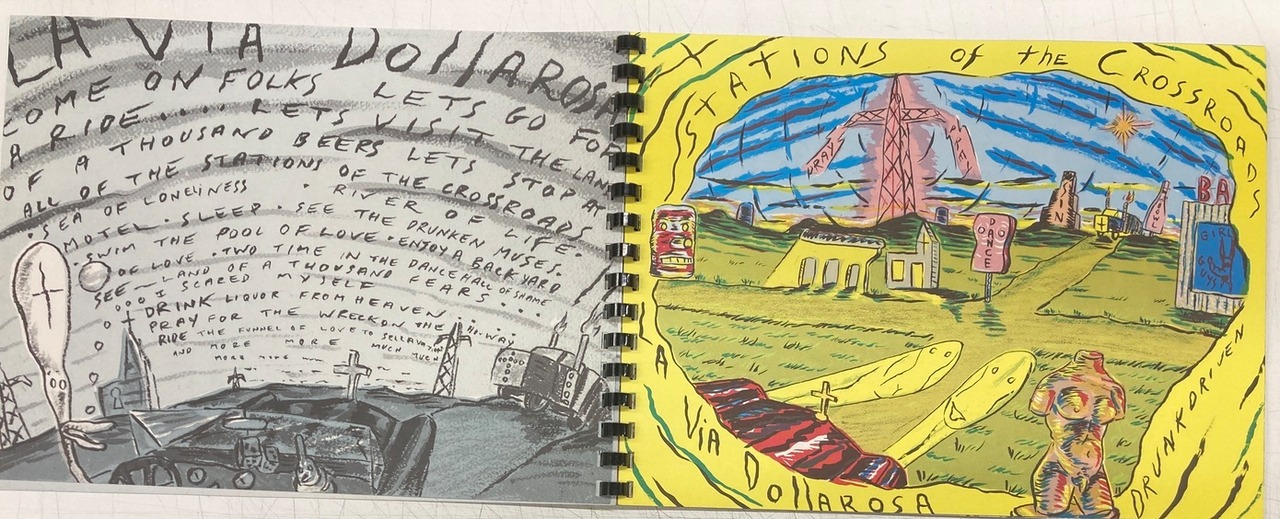 LA VIA DollAROSA
COME ON FOLKS LETS GO FOR
A RIDE.... LETS VISIT THE LAND
OF A THOUSAND BEERS LETS STOP AT
ALL OF THE STATIONS OF THE CROSSROADS
SEA OF LONELINESS · RIVER OF LIFE.
MOTEL · SLEEP · SEE THE DRUNKEN MUSES.
SWIM THE POOL OF LOVE · ENJOY A BACKYARD
OF LOVE · TWO TIME IN THE DANCEHALL OF SHAME
SEE — LAND OF A THOUSAND FEARS
I SCARED MYSELF
DRINK LIQUOR FROM HEAVEN....
PRAY FOR THE WRECK ON THE HI-WAY
RIDE THE FUNNEL OF LOVE TO
AND MORE MORE MUCH MUCH
MORE
STATIONS of the CROSSROADS
PRAY
SIN
BA
GIRL
GUYS
DANCE
LA ViA DollAROSA
DRUNK DRIVEN